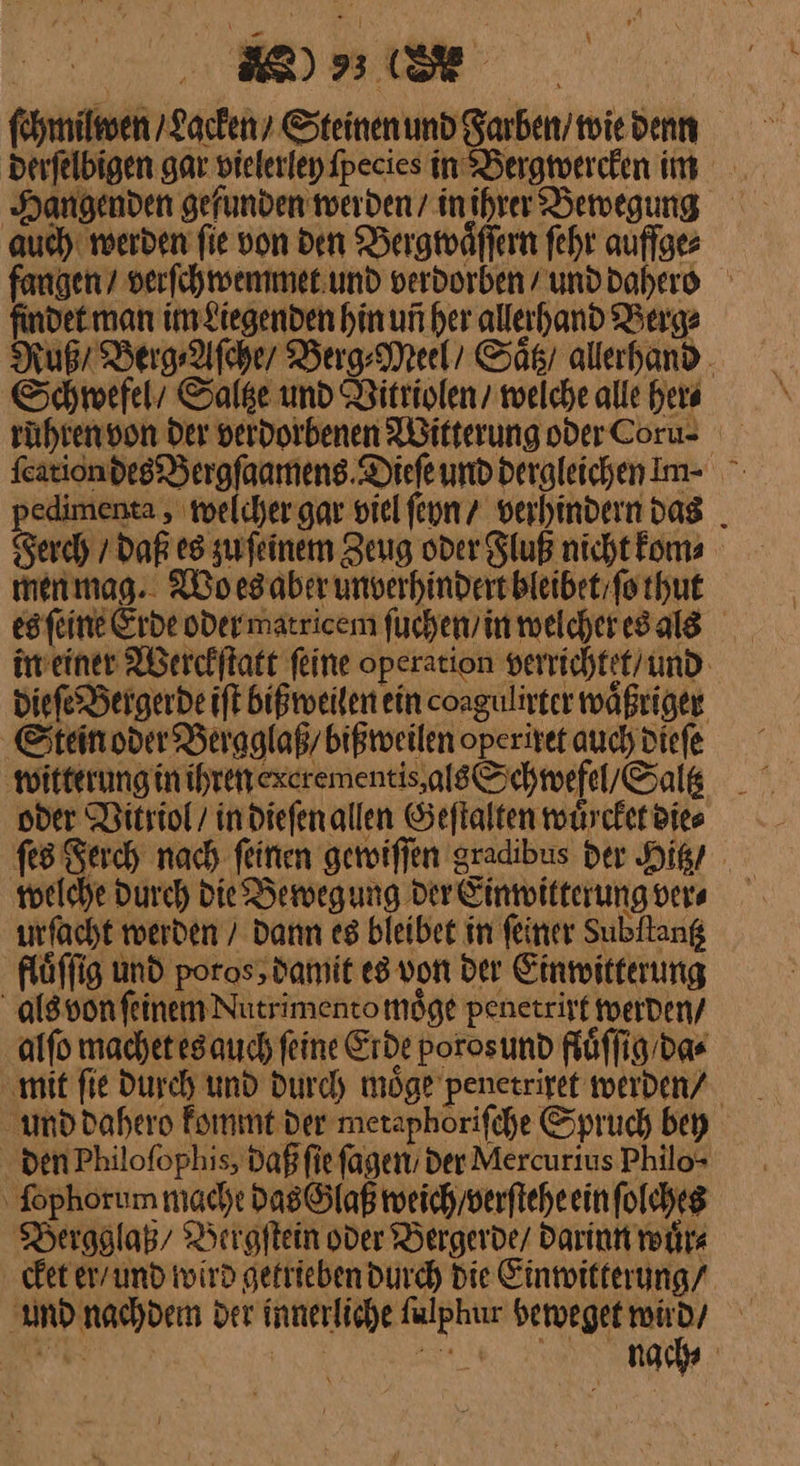 ) 93 (
ſchmilwen / Lacken / Steinen und Farben / wie denn
derſelbigen gar vielerley ſpecies in Bergwercken im
Hangenden gefunden werden / in ihrer Bewegung
auch werden ſie von den Bergwaͤſſern ſehr auffge⸗
fangen / verſchwemmet und verdorben / und dahero
findet man im Liegenden hin uñ her allerhand Berg⸗
Ruß / Berg⸗Aſche / Berg⸗Meel / Saͤtz / allerhand
Schwefel / Saltze und Vitriolen / welche alle her⸗
ruͤhren von der verdorbenen Witterung oder Coru-
ſcation des Bergſaamens. Dieſe und dergleichen Im-
pedimenta, welcher gar viel ſeyn / verhindern das
Ferch / daß es zu ſeinem Zeug oder Fluß nicht kom⸗
men mag. Wo es aber unverhindert bleibet / ſo thut
es ſeine Erde oder matricem ſuchen / in welcher es als
in einer Werckſtatt ſeine operation verrichtet / und
dieſe Bergerde iſt bißweilen ein coagulirter waͤßriger
Stein oder Bergglaß / bißweilen operiret auch dieſe
witterung in ihren excrementis, als Schwefel / Saltz
oder Vitriol / in dieſen allen Geſtalten wuͤrcket die⸗
ſes Ferch nach ſeinen gewiſſen gradibus der Hitz /
welche durch die Bewegung der Einwitterung ver⸗
urſacht werden / dann es bleibet in ſeiner Subſtantz
fluͤſſig und poros, damit es von der Einwitterung
als von ſeinem Nutrimento moͤge penetrirt werden /
alſo machet es auch ſeine Erde poros und fluͤſſig / da⸗
mit ſie durch und durch moͤge penetriret werden /
und dahero kommt der metaphoriſche Spruch bey
den Philoſophis, daß ſie ſagen / der Mercurius Philo-
ſophorum mache das Glaß weich / verſtehe ein ſolches
Bergglaß / Bergſtein oder Bergerde / darinn wuͤr⸗
cket er / und wird getrieben durch die Einwitterung /
und nachdem der innerliche ſulphur beweget wird /
nach⸗